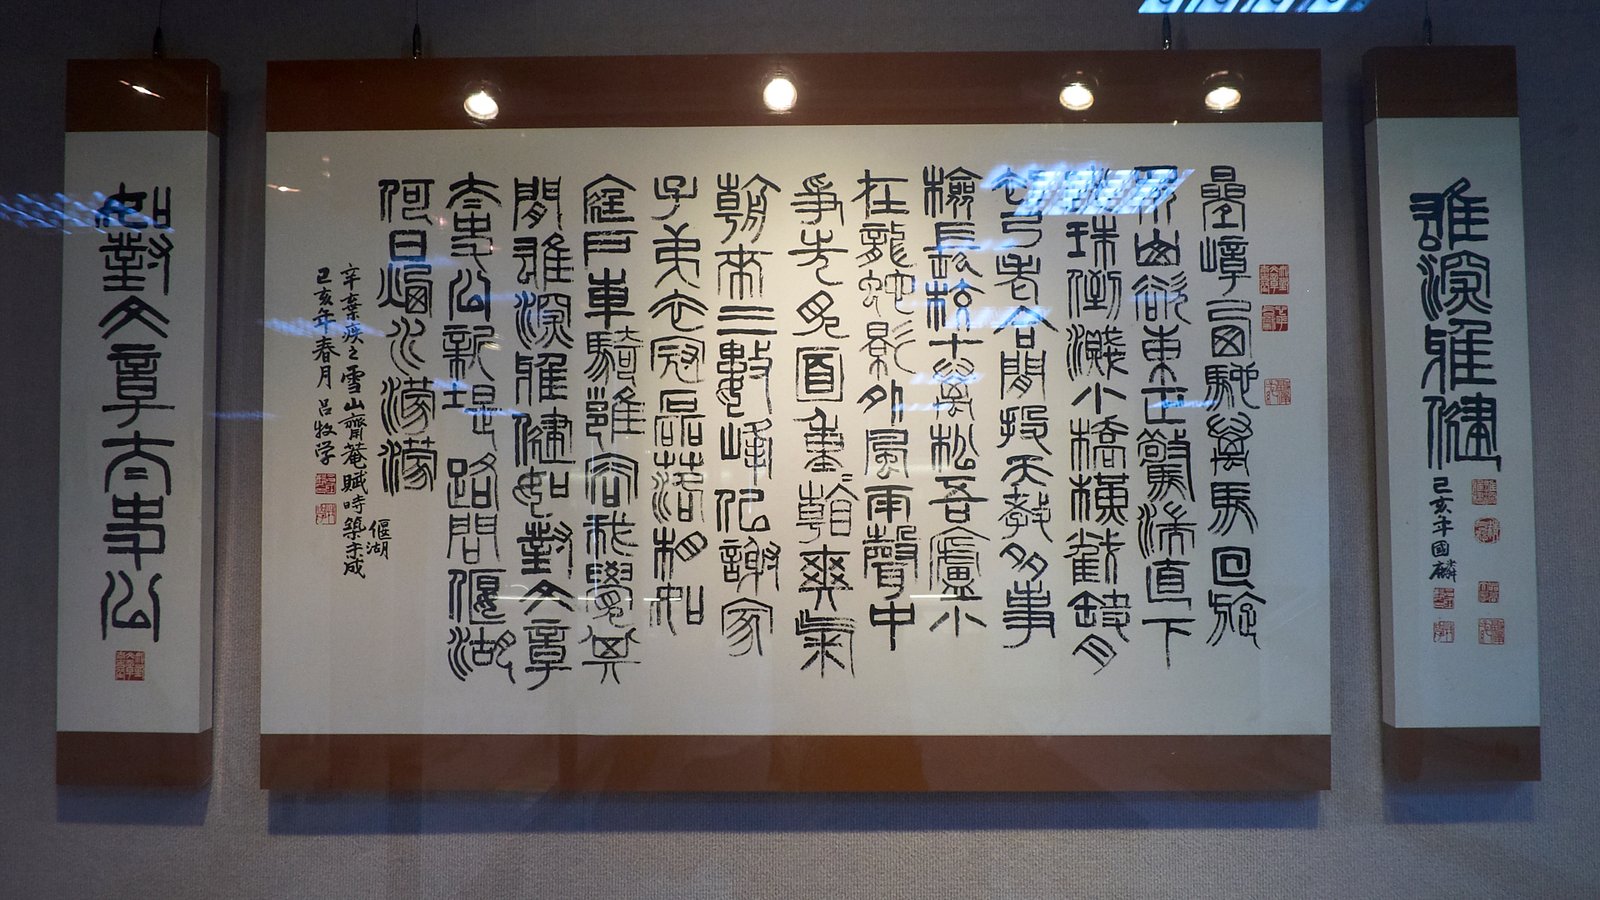 雄深雅健
己亥年國麟
疊嶂西馳萬馬回旋
眾山欲東正驚湍直下
跳珠倒濺小橋橫截缺月
初弓老合閒投天教多事
檢長十萬松吾廬小
在龍蛇影外風雨聲中
爭先見面重重看爽氣
朝來三數峰似謝家
子弟衣冠磊落相如
庭戶車騎雍容我覺其
間雄深雅健如對文章
太史公新堤路問偃湖
何日煙水濛濛
辛棄疾之雪山齋菴賦時築偃湖未成
己亥年春月呂牧学
如對文章太史公